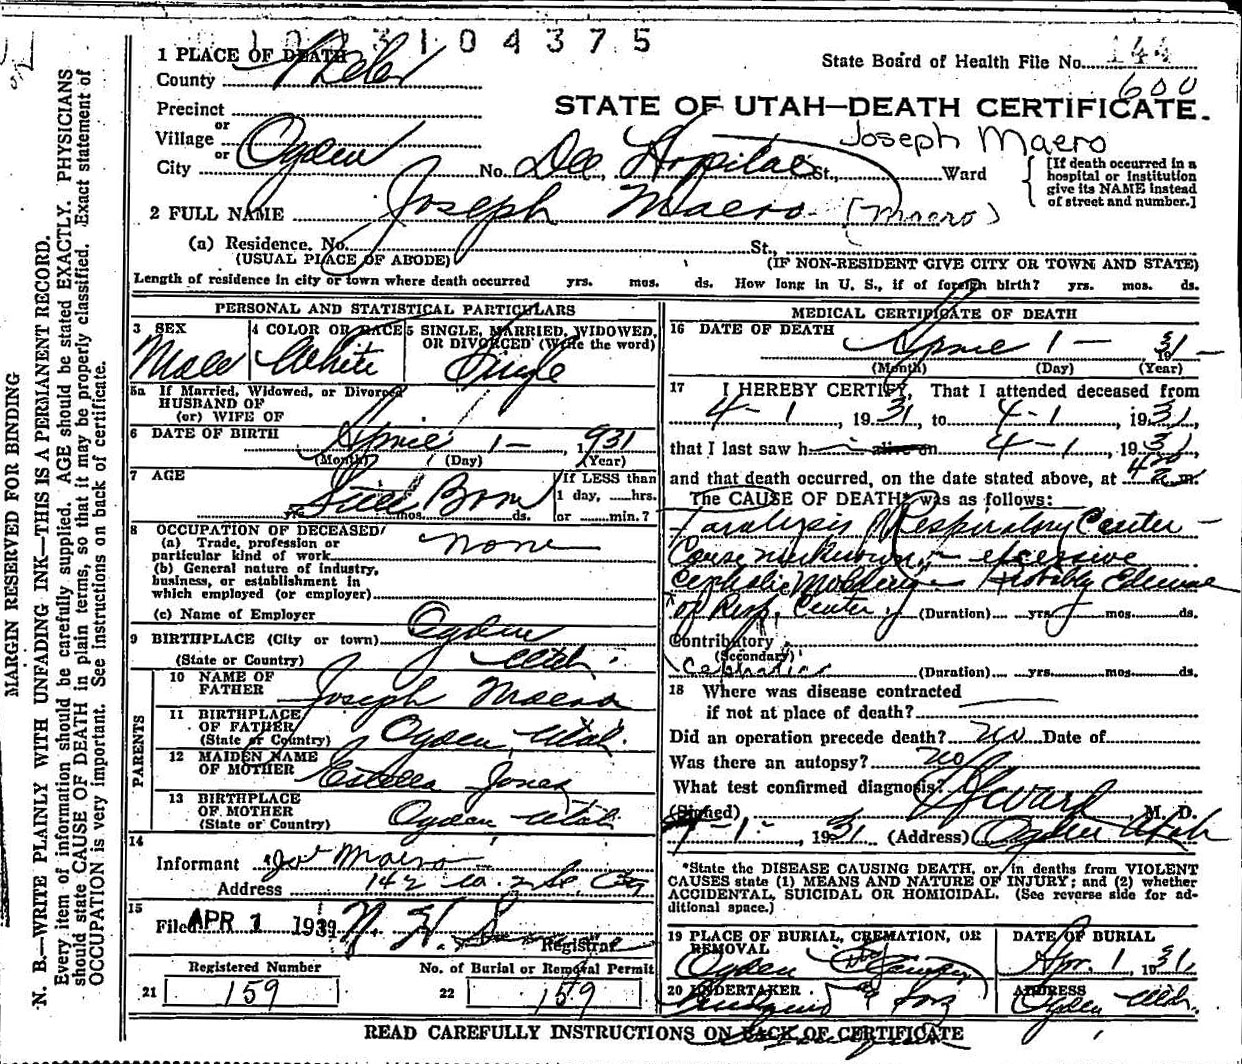 3104375
1 PLACE OF DEATH
State Board of Health File No. 144
County Weber
600
Precinct
STATE OF UTAH—DEATH CERTIFICATE.
or
Village
Joseph Maero
or
City Ogden No. Dee Hospital St., Ward
[If death occurred in a hospital or institution give its NAME instead of street and number.]
2 FULL NAME Joseph Maero (Maero)
(a) Residence. No. St.,
(USUAL PLACE OF ABODE) (IF NON-RESIDENT GIVE CITY OR TOWN AND STATE)
Length of residence in city or town where death occurred yrs. mos. ds. How long in U. S., if of foreign birth? yrs. mos. ds.
PERSONAL AND STATISTICAL PARTICULARS
3 SEX
Male
4 COLOR OR RACE
White
5 SINGLE, MARRIED, WIDOWED, OR DIVORCED (Write the word)
Single
5a If Married, Widowed, or Divorced
HUSBAND OF
(or) WIFE OF
6 DATE OF BIRTH April 1 - 1931
(Month) (Day) (Year)
7 AGE
Still Born
mos. ds.
If LESS than
1 day, ......hrs.
or ........min.?
8 OCCUPATION OF DECEASED
(a) Trade, profession or
particular kind of work none
(b) General nature of industry,
business, or establishment in
which employed (or employer)
(c) Name of Employer
9 BIRTHPLACE (City or town) Ogden
(State or Country) Utah.
PARENTS
10 NAME OF
FATHER Joseph Maero
11 BIRTHPLACE
OF FATHER
(State or Country) Ogden, Utah.
12 MAIDEN NAME
OF MOTHER Estella Jones
13 BIRTHPLACE
OF MOTHER
(State or Country) Ogden Utah
14
Informant Jos Maero
Address 142
15
Filed APR 1 1931 N. H. Registrar
Registered Number No. of Burial or Removal Permit
21 159 22 159
MEDICAL CERTIFICATE OF DEATH
16 DATE OF DEATH
April 1 - 31 -
(Month) (Day) (Year)
17 I HEREBY CERTIFY, That I attended deceased from
4-1, 1931 to 4-1, 1931,
that I last saw h alive on 4-1, 1931,
and that death occurred, on the date stated above, at m.
The CAUSE OF DEATH* was as follows:
Paralysis of Respiratory Center -
Cause unknown, - excessive
Cephalic Molding - Probably Edema
of Resp. Center. (Duration) yrs. mos. ds.
Contributory
(Secondary)
(Duration) yrs. mos. ds.
18 Where was disease contracted
if not at place of death?
Did an operation precede death? no Date of
Was there an autopsy? no
What test confirmed diagnosis?
(Signed) M. D.
4-1-, 1931 (Address) Ogden Utah
*State the DISEASE CAUSING DEATH, or in deaths from VIOLENT
CAUSES state (1) MEANS AND NATURE OF INJURY; and (2) whether
ACCIDENTAL, SUICIDAL OR HOMICIDAL. (See reverse side for ad-
ditional space.)
19 PLACE OF BURIAL, CREMATION, OR
REMOVAL
Ogden City
DATE OF BURIAL
Apr. 1, 1931.
20 UNDERTAKER
ADDRESS
Ogden Utah.
READ CAREFULLY INSTRUCTIONS ON BACK OF CERTIFICATE
MARGIN RESERVED FOR BINDING
N. B.—WRITE PLAINLY WITH UNFADING INK—THIS IS A PERMANENT RECORD.
Every item of information should be carefully supplied. AGE should be stated EXACTLY. PHYSICIANS
should state CAUSE OF DEATH in plain terms, so that it may be properly classified. Exact statement of
OCCUPATION is very important. See instructions on back of certificate.